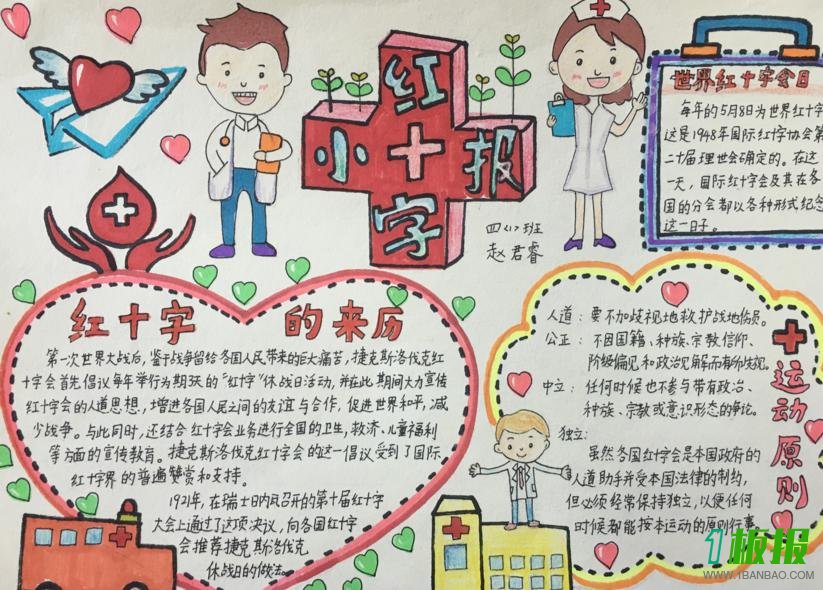 红
小十报
字
四(1)班
赵君睿
世界红十字会日
每年的5月8日为世界红十字
这是1948年国际红十字协会第
二十届理世会确定的。在这
一天，国际红十字会及其在各
国的分会都以各种形式纪念
这一日子。
红十字的来历
第一次世界大战后，鉴于战争留给各国人民带来的巨大痛苦，捷克斯洛伐克红
十字会首先倡议每年举行为期3天的“红十字”休战日活动，并在此期间大力宣传
红十字会的人道思想，增进各国人民之间的友谊与合作，促进世界和平，减
少战争。与此同时，还结合红十字会业务进行全国的卫生，救济、儿童福利
等方面的宣传教育。捷克斯洛伐克红十字会的这一倡议受到了国际
红十字界的普遍赞赏和支持。
1921年，在瑞士日内瓦召开的第十届红十字
大会上通过了这项决议，向各国红十字
会推荐捷克斯洛伐克
休战日的做法。
十运动原则
人道：要不加歧视地救护战地伤员。
公正：不因国籍、种族、宗教信仰、
阶级偏见和政治见解而有所歧视。
中立：任何时候也不参与带有政治、
种族、宗教或意识形态的争论。
独立：
虽然各国红十字会是本国政府的
人道助手并受本国法律的制约，
但必须经常保持独立，以便任何
时候都能按本运动的原则行事
1板报
WWW.1BANBAO.COM